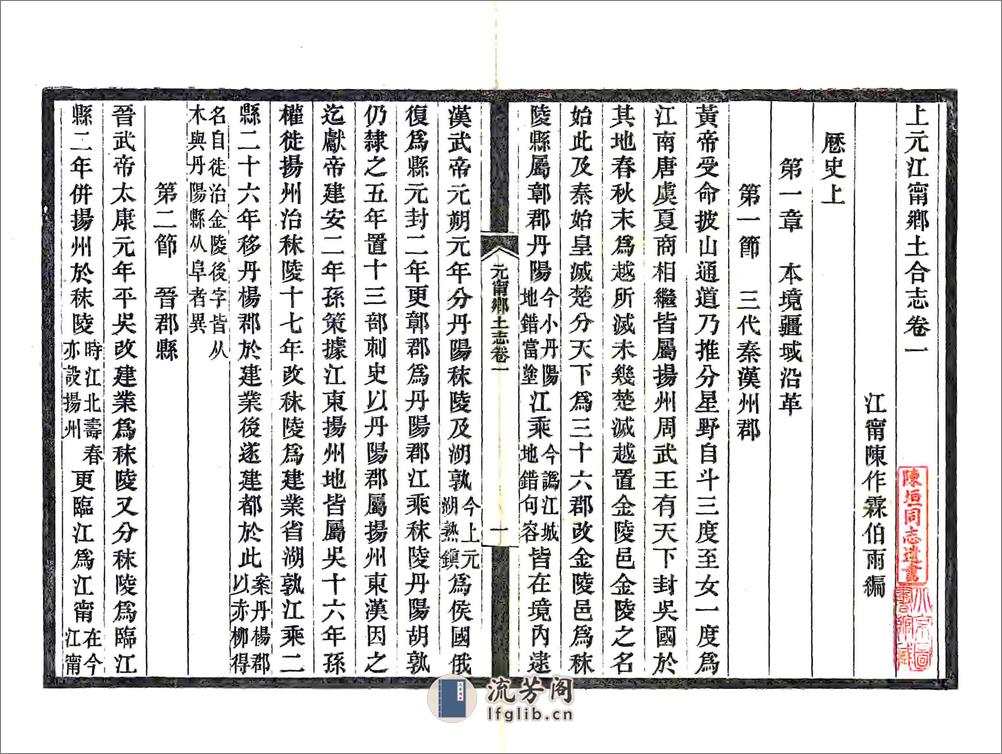 上元江甯鄉土合志卷一
江甯陳作霖伯雨編
陳垣同志遺書
歷史上
第一章 本境疆域沿革
第一節 三代秦漢州郡
黃帝受命披山通道乃推分星野自斗三度至女一度爲
江南唐虞夏商相繼皆屬揚州周武王有天下封吳國於
其地春秋末爲越所滅未幾楚滅越置金陵邑金陵之名
始此及秦始皇滅楚分天下爲三十六郡改金陵邑爲秣
陵縣屬鄣郡丹陽今小丹陽地錯當塗江乘今譌江城地錯句容皆在境內逮
元甯鄉土志卷一
一
漢武帝元朔元年分丹陽秣陵及湖孰今上元湖熟鎮爲侯國俄
復爲縣元封二年更鄣郡爲丹陽郡江乘秣陵丹陽胡孰
仍隸之五年置十三部刺史以丹陽郡屬揚州東漢因之
迄獻帝建安二年孫策據江東揚州地皆屬吳十六年孫
權徙揚州治秣陵十七年改秣陵爲建業省湖孰江乘二
縣二十六年移丹楊郡於建業後遂建都於此案丹楊郡以赤柳得
名自徙治金陵後字皆从木與丹陽縣从阜者異
第二節 晉郡縣
晉武帝太康元年平吳改建業爲秣陵又分秣陵爲臨江
縣二年併揚州於秣陵時江北壽春亦設揚州更臨江爲江甯在今江甯
流芳阁
lfglib.cn